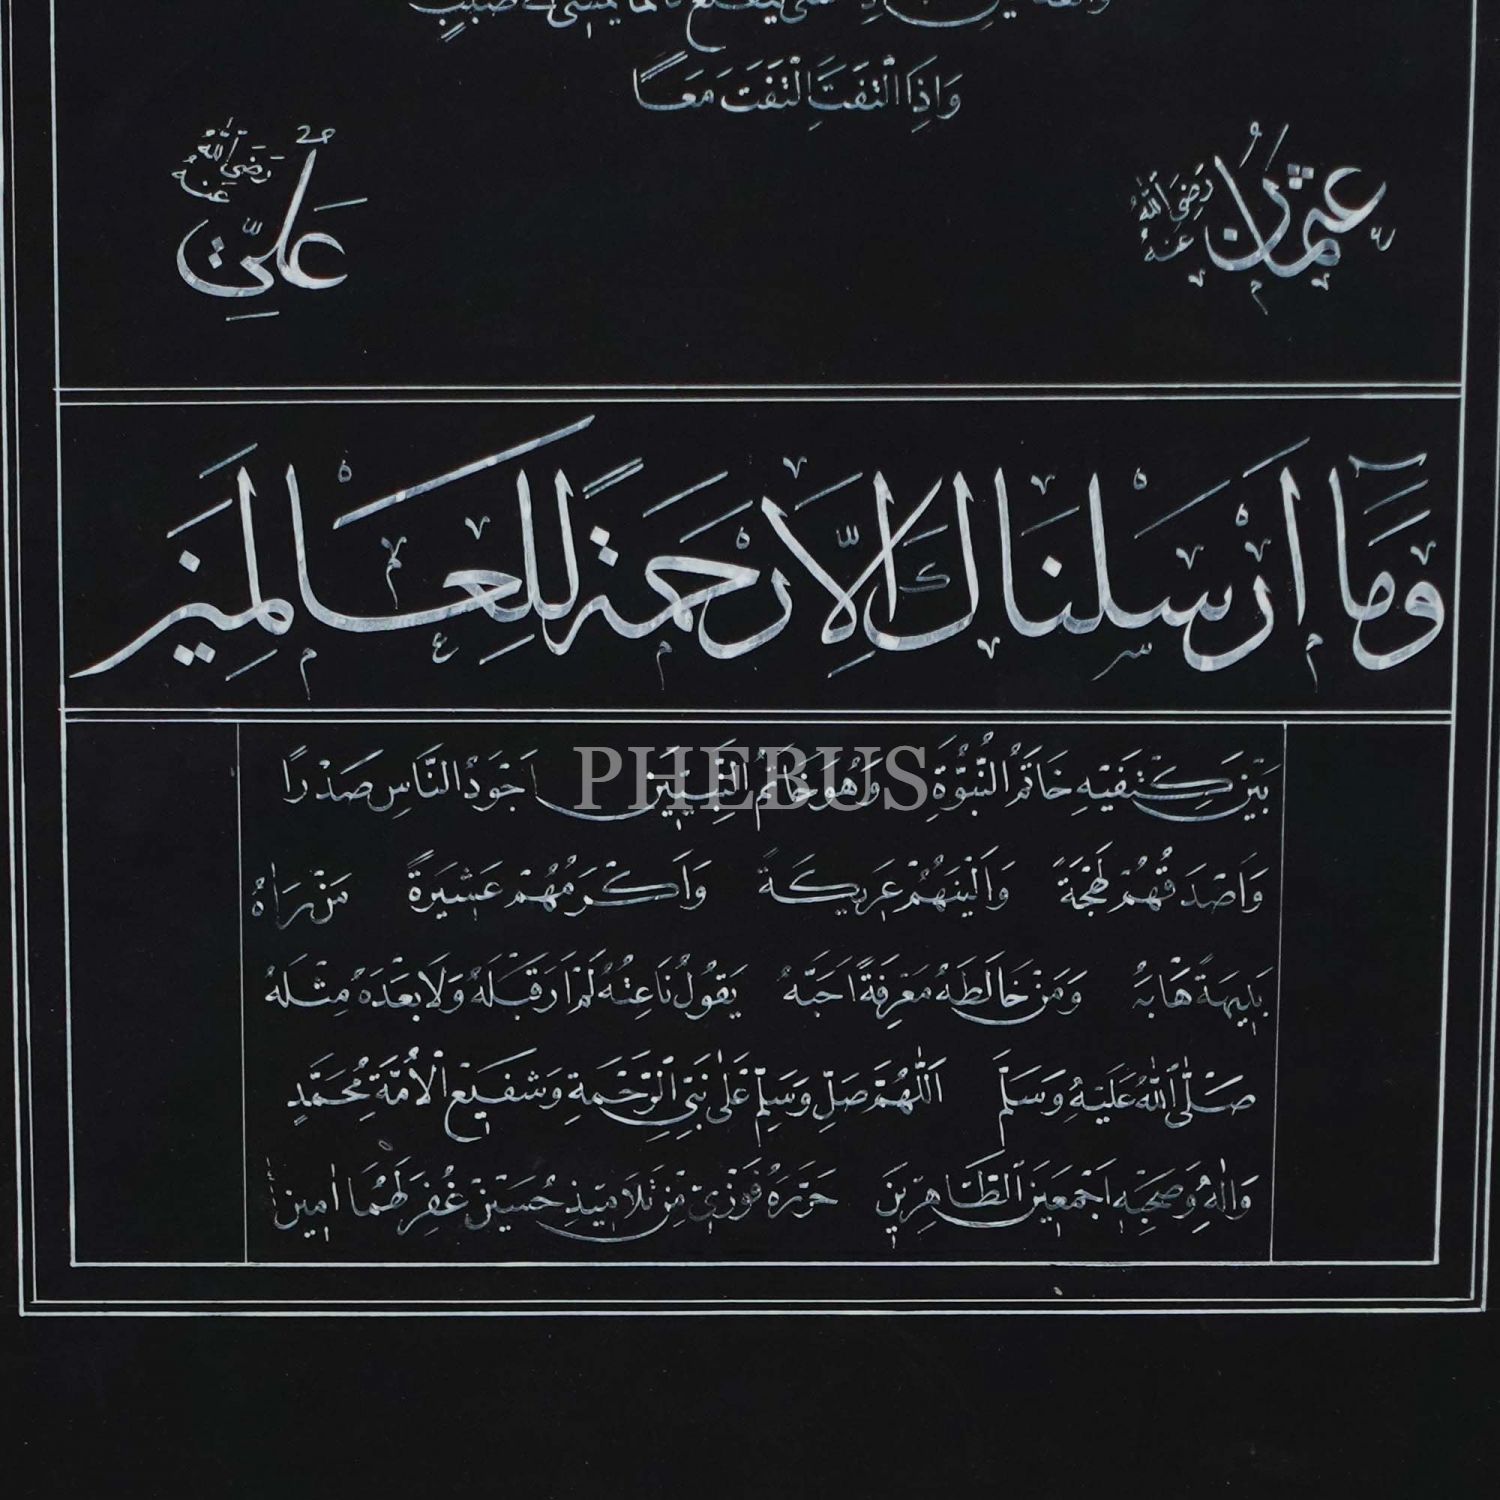 تَقَلَّعَ كَاَنَّمَا يَمْشٖى فٖى صَبَبٍ
وَاِذَا الْتَفَتَ الْتَفَتَ مَعًا
عُثْمَانُ رَضِىَ اللّٰهُ عَنْهُ
عَلِىّ رَضِىَ اللّٰهُ عَنْهُ
وَمَٓا اَرْسَلْنَاكَ اِلَّا رَحْمَةً لِلْعَالَمٖينَ
PHEBUS
بَيْنَ كَتِفَيْهِ خَاتَمُ النُّبُوَّةِ وَهُوَ خَاتَمُ النَّبِيّٖينَ اَجْوَدُ النَّاسِ صَدْرًا
وَاَصْدَقُهُمْ لَهْجَةً وَاَلْيَنُهُمْ عَرٖيكَةً وَاَكْرَمُهُمْ عَشٖيرَةً مَنْ رَاٰهُ
بَدٖيهَةً هَابَهُ وَمَنْ خَالَطَهُ مَعْرِفَةً اَحَبَّهُ يَقُولُ نَاعِتُهُ لَمْ اَرَ قَبْلَهُ وَلَا بَعْدَهُ مِثْلَهُ
صَلَّى اللّٰهُ عَلَيْهِ وَسَلَّمَ اَللّٰهُمَّ صَلِّ وَسَلِّمْ عَلٰى نَبِىِّ الرَّحْمَةِ وَشَفٖيعِ الْاُمَّةِ مُحَمَّدٍ
وَاٰلِهٖ وَصَحْبِهٖ اَجْمَعٖينَ الطَّاهِرٖينَ حَرَّرَهُ فَوْزٖى مِنْ تَلَامٖيذِ حُسَيْنْ غُفِرَ لَهُمَا اٰمٖين